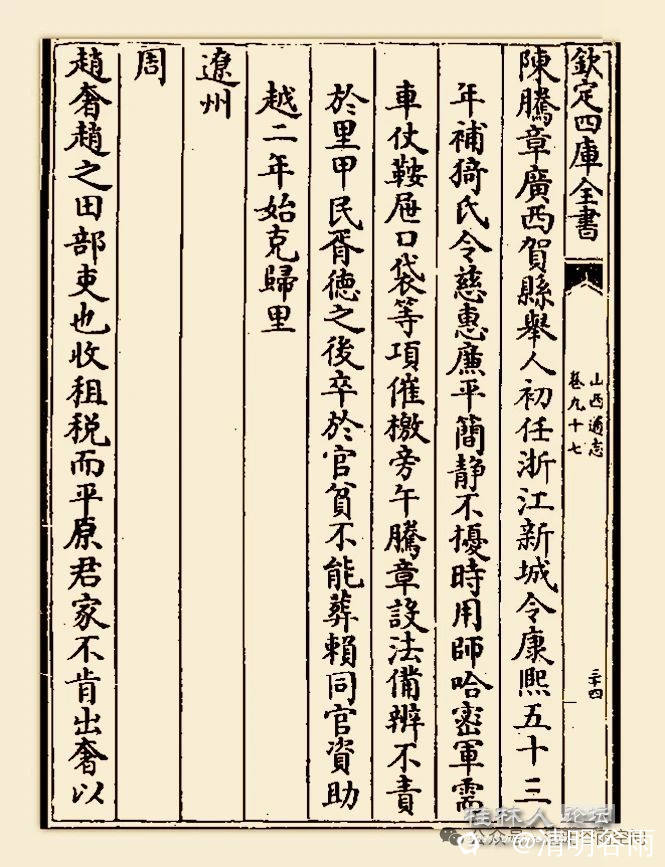 欽定四庫全書
山西通志
卷九十七
三十四
陳騰章廣西賀縣舉人初任浙江新城令康熙五十三
年補猗氏令慈惠廉平簡静不擾時用師哈宻軍需
車仗鞍屉口袋等項催檄旁午騰章設法備辦不責
於里甲民胥徳之後卒於官貧不能葬賴同官資助
越二年始克歸里
遼州
周
趙奢趙之田部吏也收租税而平原君家不肯出奢以
桂林人论坛
公众号
清明谷雨